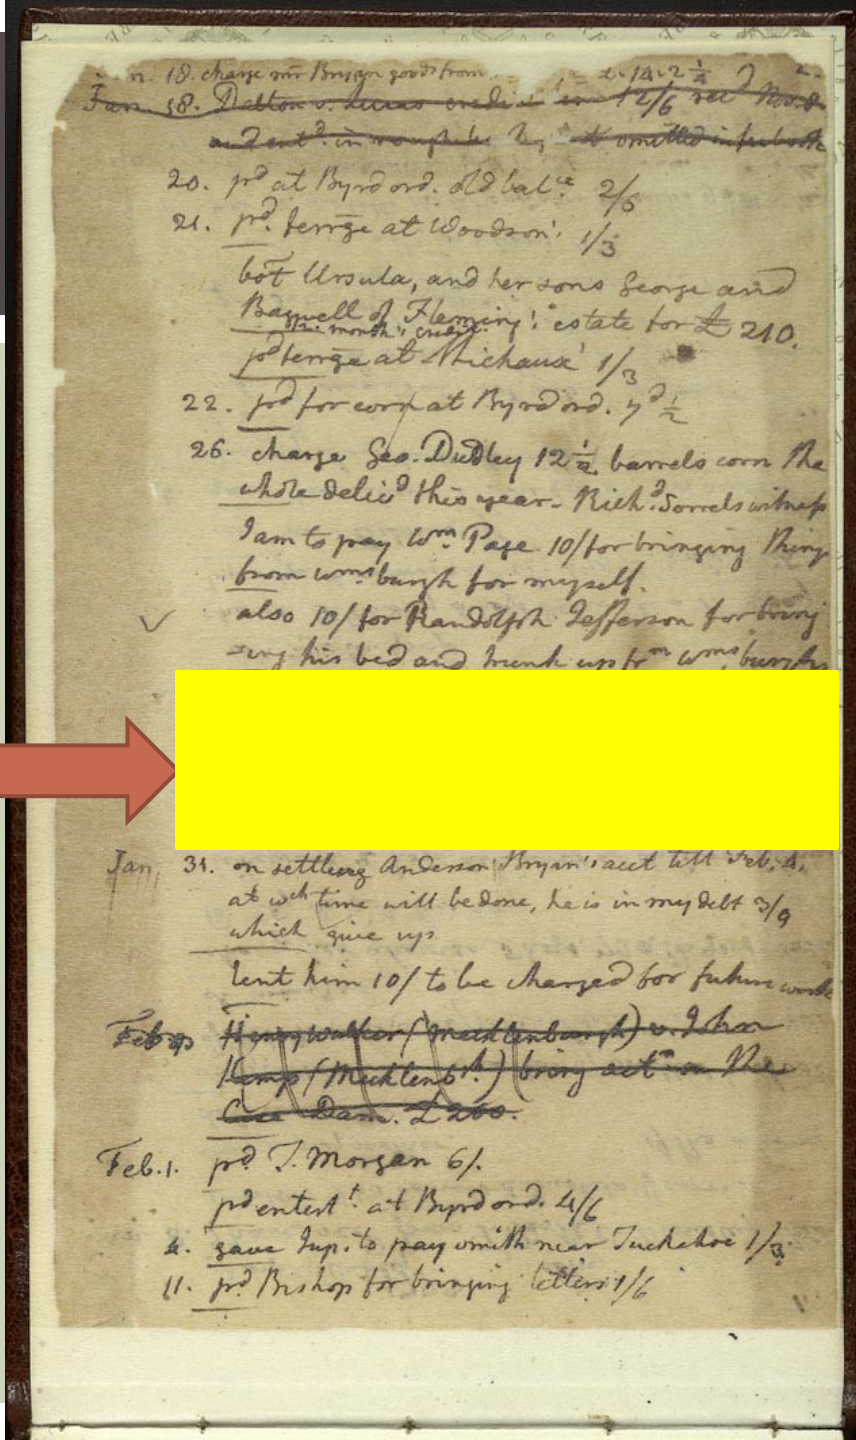 18. charge mr Bryan goods from £. 14. 2 ¼
Jan. 18. Dalton v. Lucas 12/6 Nov. 8
omitted in
20. pd at Byrd ord. old balce. 2/6
21. pd. ferrge at Woodson's 1/3
bot Ursula, and her sons George and
Bagwell of Fleming's estate for £210.
12. month's credit.
pd ferrge at Michaux' 1/3
22. pd for corn at Byrd ord. 7d ½
26. charge Geo. Dudley 12 ½ barrels corn the
whole delivd this year. Richd. Sorrels witness
I am to pay Wm. Page 10/ for bringing things
from Wmsburgh for myself.
also 10/ for Randolph Jefferson for bring
-ing his bed and trunk up frm Wmsburgh
Jan. 31. on settling Anderson Bryan's acct till Feb. 4.
at wch time will be done, he is in my debt 3/9
which give up.
lent him 10/ to be charged for future work
Feb. Henry Walker (Mecklenburgh) v. John
Kemp (Mecklenbgh.) bring actn on the
Case Dam. £200.
Feb. 1. pd. T. Morgan 6/.
pd entertt. at Byrd ord. 4/6
4. gave Jup. to pay smith near Tuckahoe 1/3.
11. pd Bishop for bringing letters 1/6